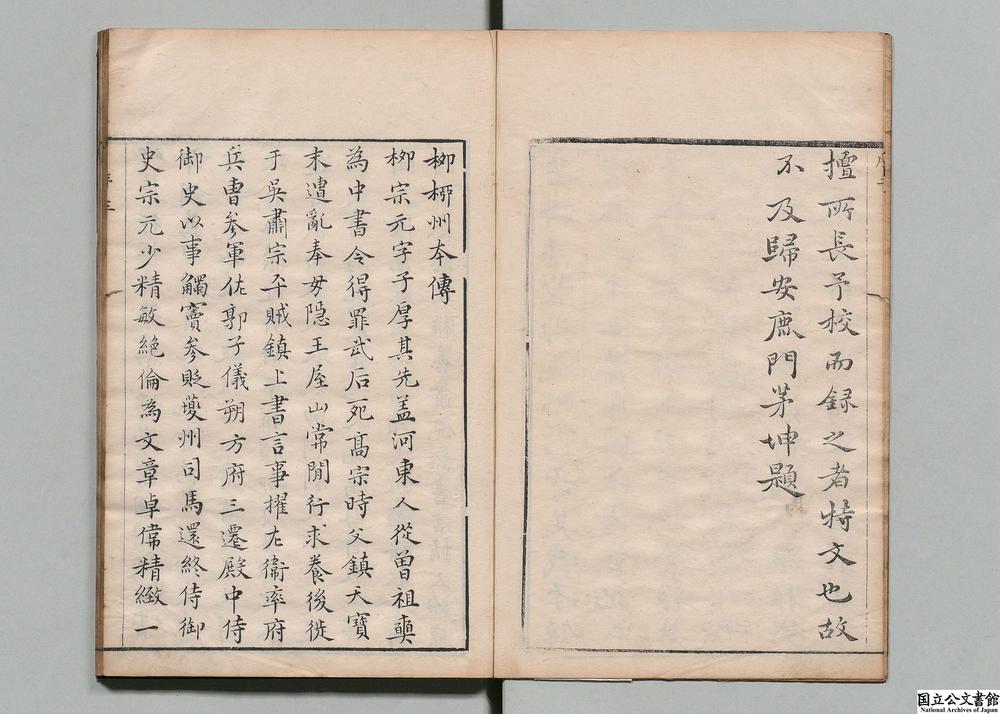 擅所長予校而録之者特文也故
不及歸安鹿門茅坤題
栁栁州本傳
栁宗元字子厚其先盖河東人從曾祖奭
為中書令得罪武后死髙宗時父鎮天寳
末遭亂奉母隠王屋山常閒行求養後徙
于吳肅宗平賊鎮上書言事擢左衞率府
兵曹參軍佐郭子儀朔方府三遷殿中侍
御史以事觸竇參貶夔州司馬還終侍御
史宗元少精敏絶倫為文章卓偉精緻一
国立公文書館
National Archives of Japan